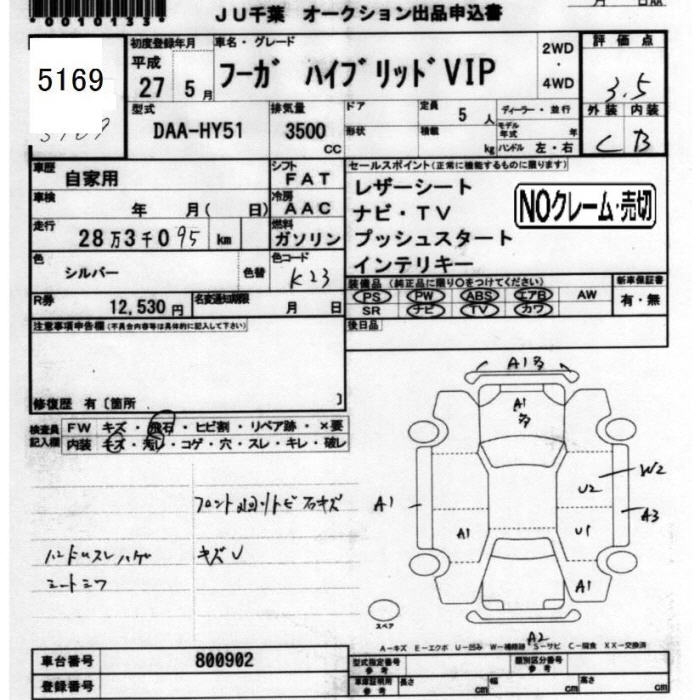 *0010133*
JU千葉 オークション出品申込書
月 日AA
5169
初度登録年月 平成 27 5月
車名・グレード フーガ ハイブリッドVIP
2WD・4WD
評価点 3.5
型式 DAA-HY51
排気量 3500 CC
ドア
形状
定員 5 人
積載 kg
ディーラー・並行
モデル年式 年
ハンドル 左・右
外装 内装
C B
車歴 自家用
シフト FAT
車検 年 月( 日)
冷房 AAC
走行 28万3千095 km
燃料 ガソリン
色 シルバー 色替
色コード K23
R券 12,530円 名変通知期限 月 日
セールスポイント(正常に機能するものに限ります)
レザーシート
ナビ・TV
プッシュスタート
インテリキー
NOクレーム・売切
装備品(純正品に限り○をつけてください)
PS PW ABS エアB AW
SR ナビ TV カワ
新車保証書 有・無
後日品
注意事項申告欄(不具合内容等は具体的に記入して下さい)
修復歴 有〔箇所 〕
検査員記入欄
FW キズ・飛石・ヒビ割・リペア跡・×要
内装 キズ・汚レ・コゲ・穴・スレ・キレ・破レ
キズU
A1多
A1多
W2
U2
A1
A3
A1
U1
A1
A2
スペア
A-キズ E-エクボ U-凹み W-補修跡 S-サビ C-腐食 XX-交換済
車台番号 800902
登録番号
型式指定番号 参考
類別区分番号 参考
車庫証明用 参考 長さ cm 幅 cm 高さ cm